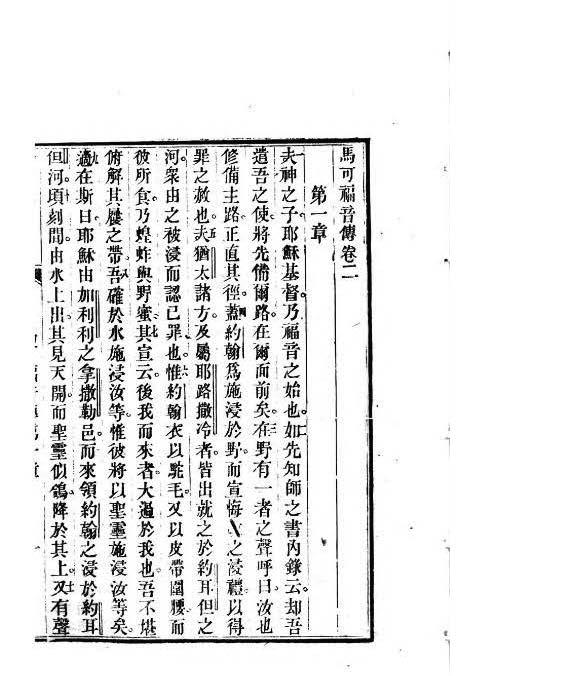 馬可福音傳卷二
第一章
夫神之子耶穌基督乃福音之始也如先知師之書內錄云却吾
遣吾之使將先備爾路在爾面前矣在野有一者之聲呼曰汝也
修備主路正直其徑蓋約翰爲施浸於野而宣悔之浸禮以得
罪之赦也夫猶太諸方及屬耶路撒冷者皆出就之於約耳但之
河衆由之被浸而認己罪也惟約翰衣以駝毛又以皮帶圍腰而
彼所食乃蝗蚱與野蜜其宣云後我而來者大過於我也吾不堪
俯解其屨之帶吾確於水施浸汝等惟彼將以聖靈施浸汝等矣
適在斯日耶穌由加利利之拿撒勒邑而來領約翰之浸於約耳
但河頃刻間由水上出其見天開而聖靈似鴿降於其上又有聲